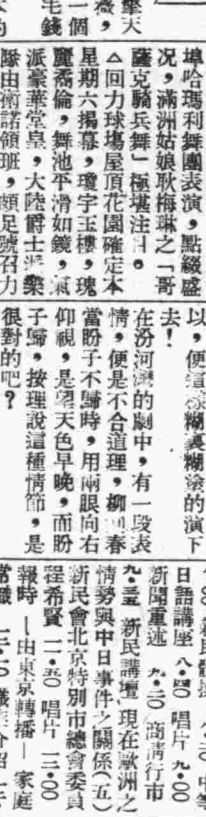 擎天
一個
毛錢
埠哈瑪利舞團表演,點綴盛
况,滿洲姑娘耿梅琳之「哥
薩克騎兵舞」極堪注目。
△回力球塲屋頂花園確定本
星期六揭幕,瓊宇玉樓,瑰
麗喬倫,舞池平滑如鏡,氣
派豪華堂皇,大陸爵士樂
隊由術諾領班,頗足號召力
以,便這樣糊裏糊塗的演下
去!
在汾河灣的劇中,有一段表
情,便是不合道理,柳迎春
當盼子不歸時,用兩眼向右
仰視,是望天色早晚,而盼
子歸,按理說這種情節,是
很對的吧?
日語講座 八・四〇 唱片 九・〇〇
新聞重述 九・二〇 商情行市
九・三五 新民講壇,現在歐洲之
情勢與中日事件之關係(五)
新民會北京特別市總會委員
程希賢 一一・五〇 唱片 一二・〇〇
報時 —由東京轉播— 家庭